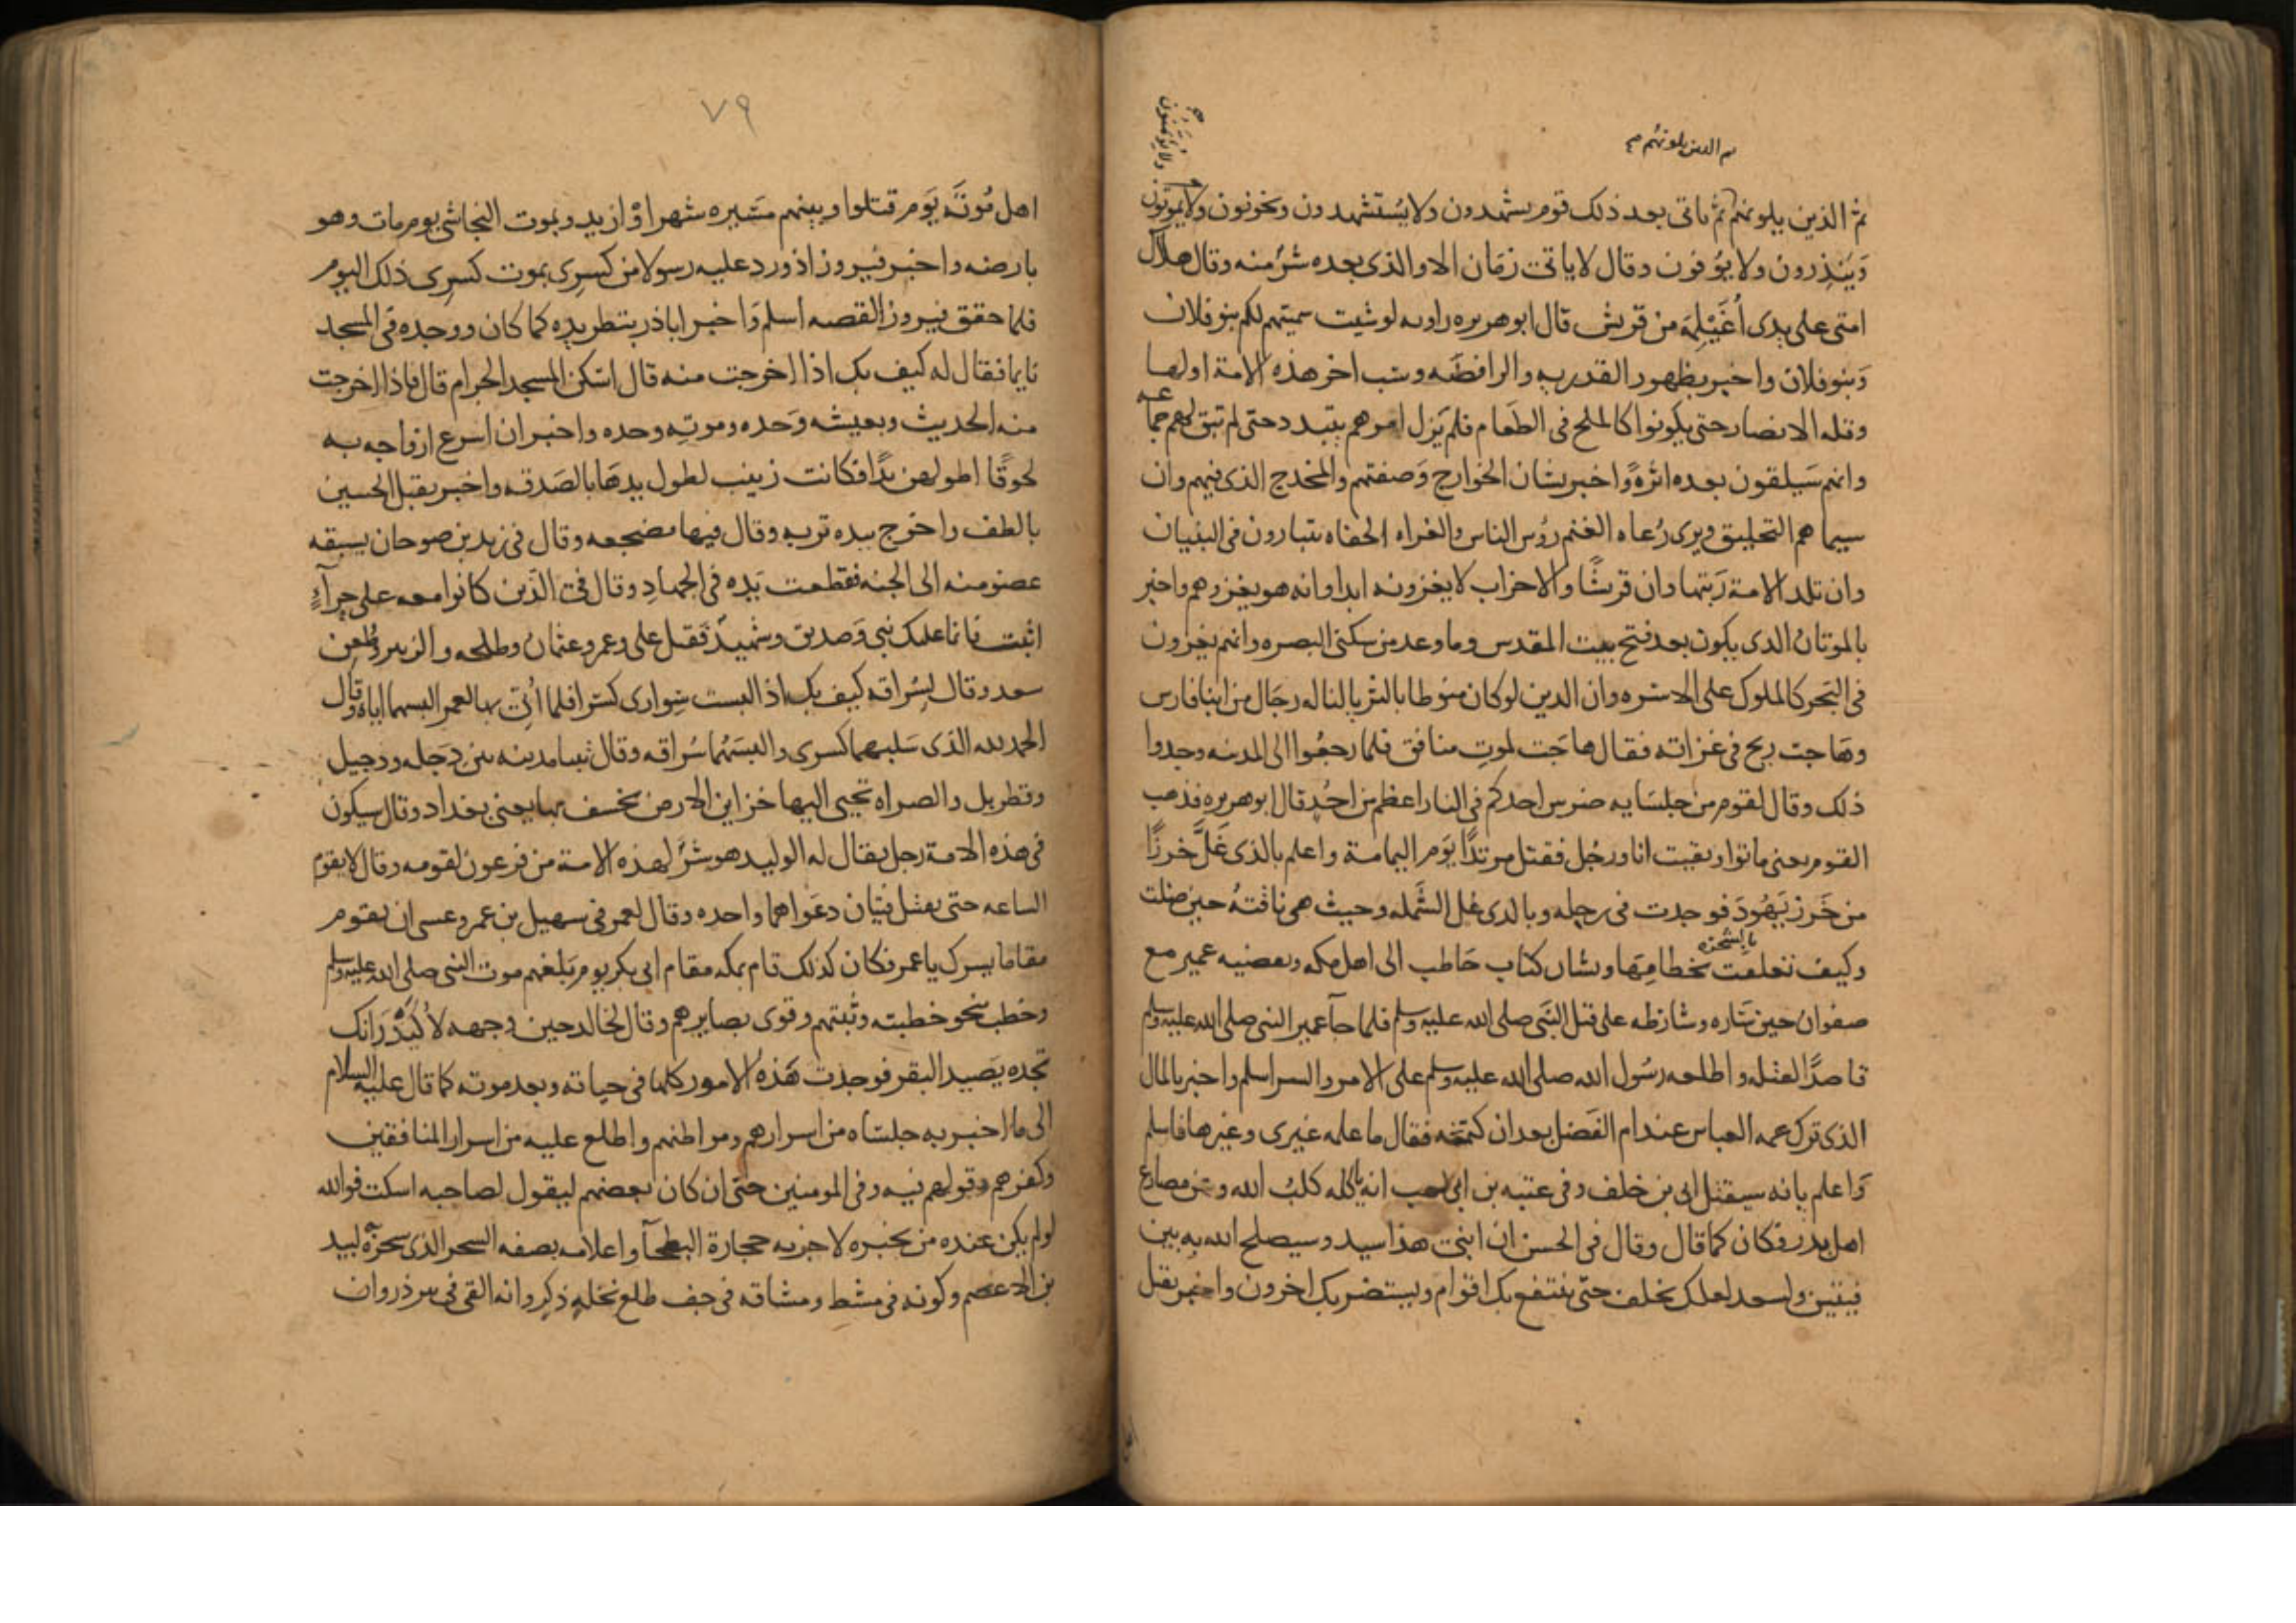 ثم الذين يلونهم
ولا يؤتمنون
ثم الذين يلونهم ثم ياتى بعد ذلك قوم يشهدون ولا يُستشهدون ويخونون ولا يؤتمنون
وَيَنذِرون ولا يوُفون وقال لا ياتى زمَان الا والذى بعده شرٌ منه وقال هلاك
امتى على يدى اُغَيْلِمَة من قريش قال ابو هريره راويه لو شيت سميتهم لكم بنو فلان
وَبنو فلان واخبر بظهور القدريه والرافضَه وسب اخر هذه الامة اولها
وقله الانصار حتى يكونوا كالملح فى الطعَام فلم يَزل امرهم يتبدد حتى لم تبق لهم جماعه
وانهم سَيلقون بعده اثرهً واخبر بشان الخوارج وَصفتهم والمخدج الذى فيهم وان
سيماهم التحليق ويرى رُعاه الغنم رؤس الناس والعراه الحفاه يتبارون فى البنيان
وان تلد الامة رَبتها وان قريشًا والاحزاب لا يغزونه ابدا وانه هو يغزوهم واخبر
بالموتان الذى يكون بعد فتح بيت المقدس وما وعد من سكنى البصره وانهم يغزون
فى البَحر كالملوك على الاسره وان الدين لو كان منوطا بالثريا لناله رجَال من ابنا فارس
وهَاجت ريح فى غزاته فقال هاجَت لموتِ منافق فلما رجعُوا الى المدينه وجدوا
ذلك وقال لقوم من جلسَايه ضرس احدكم فى النار اعظم من احُد قال ابو هريره فذهب
القوم يعنى ماتوا وبقيت انا ورجُل فقتل مرتدًا يَوم اليمامة واعلم بالذى غَلَّ خرزًا
من خَرز يَهُودَ فوجدت فى رحله وبالذى غل الشَمله وحيث هى ناقتهُ حين ضلت
وكيف تعلقت بالشجَره بخطامِهَا وبشان كتاب حَاطب الى اهل مكه وبقضيه عمير مع
صفوان حين سَاره وشارطه على قتل النَبى صلى الله عليه وسلم فلما جآ عمير النبى صلى الله عليه وسلم
قاصدًا لقتله واطلعه رسُول الله صلى الله عليه وسلم على الامر والسر اسلم واخبر بالمال
الذى ترك عمه العباس عند ام الفَضل بعد ان كتمَه فقال ما علمه غيرى وغيرها فاسلم
وَاعلم بانه سيقتل ابى بن خلف وفى عتبه بن ابى لهب انه ياكله كلبُ الله وعن مصارع
اهل بدر فكان كما قال وقال فى الحسن ان ابنى هذا سيد وسيصلح الله به بين
فيتين ولسعد لعلك تخلف حتّى ينتفع بك اقوام ويستضر بك اخرون واخبر بقتل
٧٩
اهل مُوتَه يَوم قتلوا وبينهم مسَيره شهر اوْ ازيد وبموت النجاشى يوم مات وهو
بارضه واخبر فيروز اذ ورد عليه رسولا من كِسرى بموت كسرى ذلك اليوم
فلما حقق فيروز القصه اسلم وَاخبر اباذر بتطريده كما كان ووجده فى المسجد
نايما فقال له كيف بك اذا اخرجت منه قال اسكن المسجد الحرام قال فاذا اخرجت
منه الحديث وبعيشه وَحده وموتِه وحده واخبر ان اسرع ازواجه به
لحوقًا اطولهن يدًا فكانت زينب لطول يدهَا بالصَدقه واخبر بقتل الحسين
بالطف واخرج بيده تربه وقال فيها مضجعه وقال فى زيد بن صوحان يسبقه
عضو منه الى الجنه فقطعت يَده فى الجهادِ وقال فى الذَين كانوا معه على حِرآءٍ
اثبت فانما عليك نبى وَصديق وشهيدٌ فقتل على وعمر وعثمان وطلحه والزبير وطُعِن
سعد وقال لسُراقه كيف بك اذ البست سِوارى كسرا فلما اُتى بهما لعمر البسهما اياه وقال
الحمد لله الذى سَلبهما كسرى والبسَهُما سُراقه وقال تبنا مدينه بين دَجله ودجيل
وقطربل والصراه تجبى اليها خزاين الارض يخسف بها يعنى بغداد وقال سيكون
فى هذه الامة رجل يقال له الوليد هو شرٌ لهذه الامة من فرعون لقومه وقال لا تقوم
الساعه حتى يقتتل فيتان دعوَاهما واحده وقال لعمر فى سهيل بن عمرو عسى ان يقوم
مقاما يسرك يا عمر فكان كذلك قام بمكه مقام ابى بكر يوم بَلغهم موت النبى صلى الله عليه وسلم
وخطب بنحو خطبته وثبتهم وقوى بصايرهم وقال لخالد حين وجهه لاُكَيْدَر انك
تجده يصَيد البقر فوجدت هَذه الامور كلها فى حياته وبعد موته كما قال عليه السلام
الى ما اخبر به جلسَاه من اسرارهم ومواطنهم واطلع عليه من اسرار المنافقين
وكفرهم وقولهم فيه وفى المومنين حتى ان كان بعضهم ليقول لصاحبه اسكت فوالله
لو لم يكن عنده من يخبره لاخبرته حجارة البطحآ واعلامه بصفه السحر الذى سحرَه لبيد
بن الاعصم وكونه فى مشط ومشاقه فى جف طلع نخلهٍ ذكرٍ وانه القى فى بير ذروان